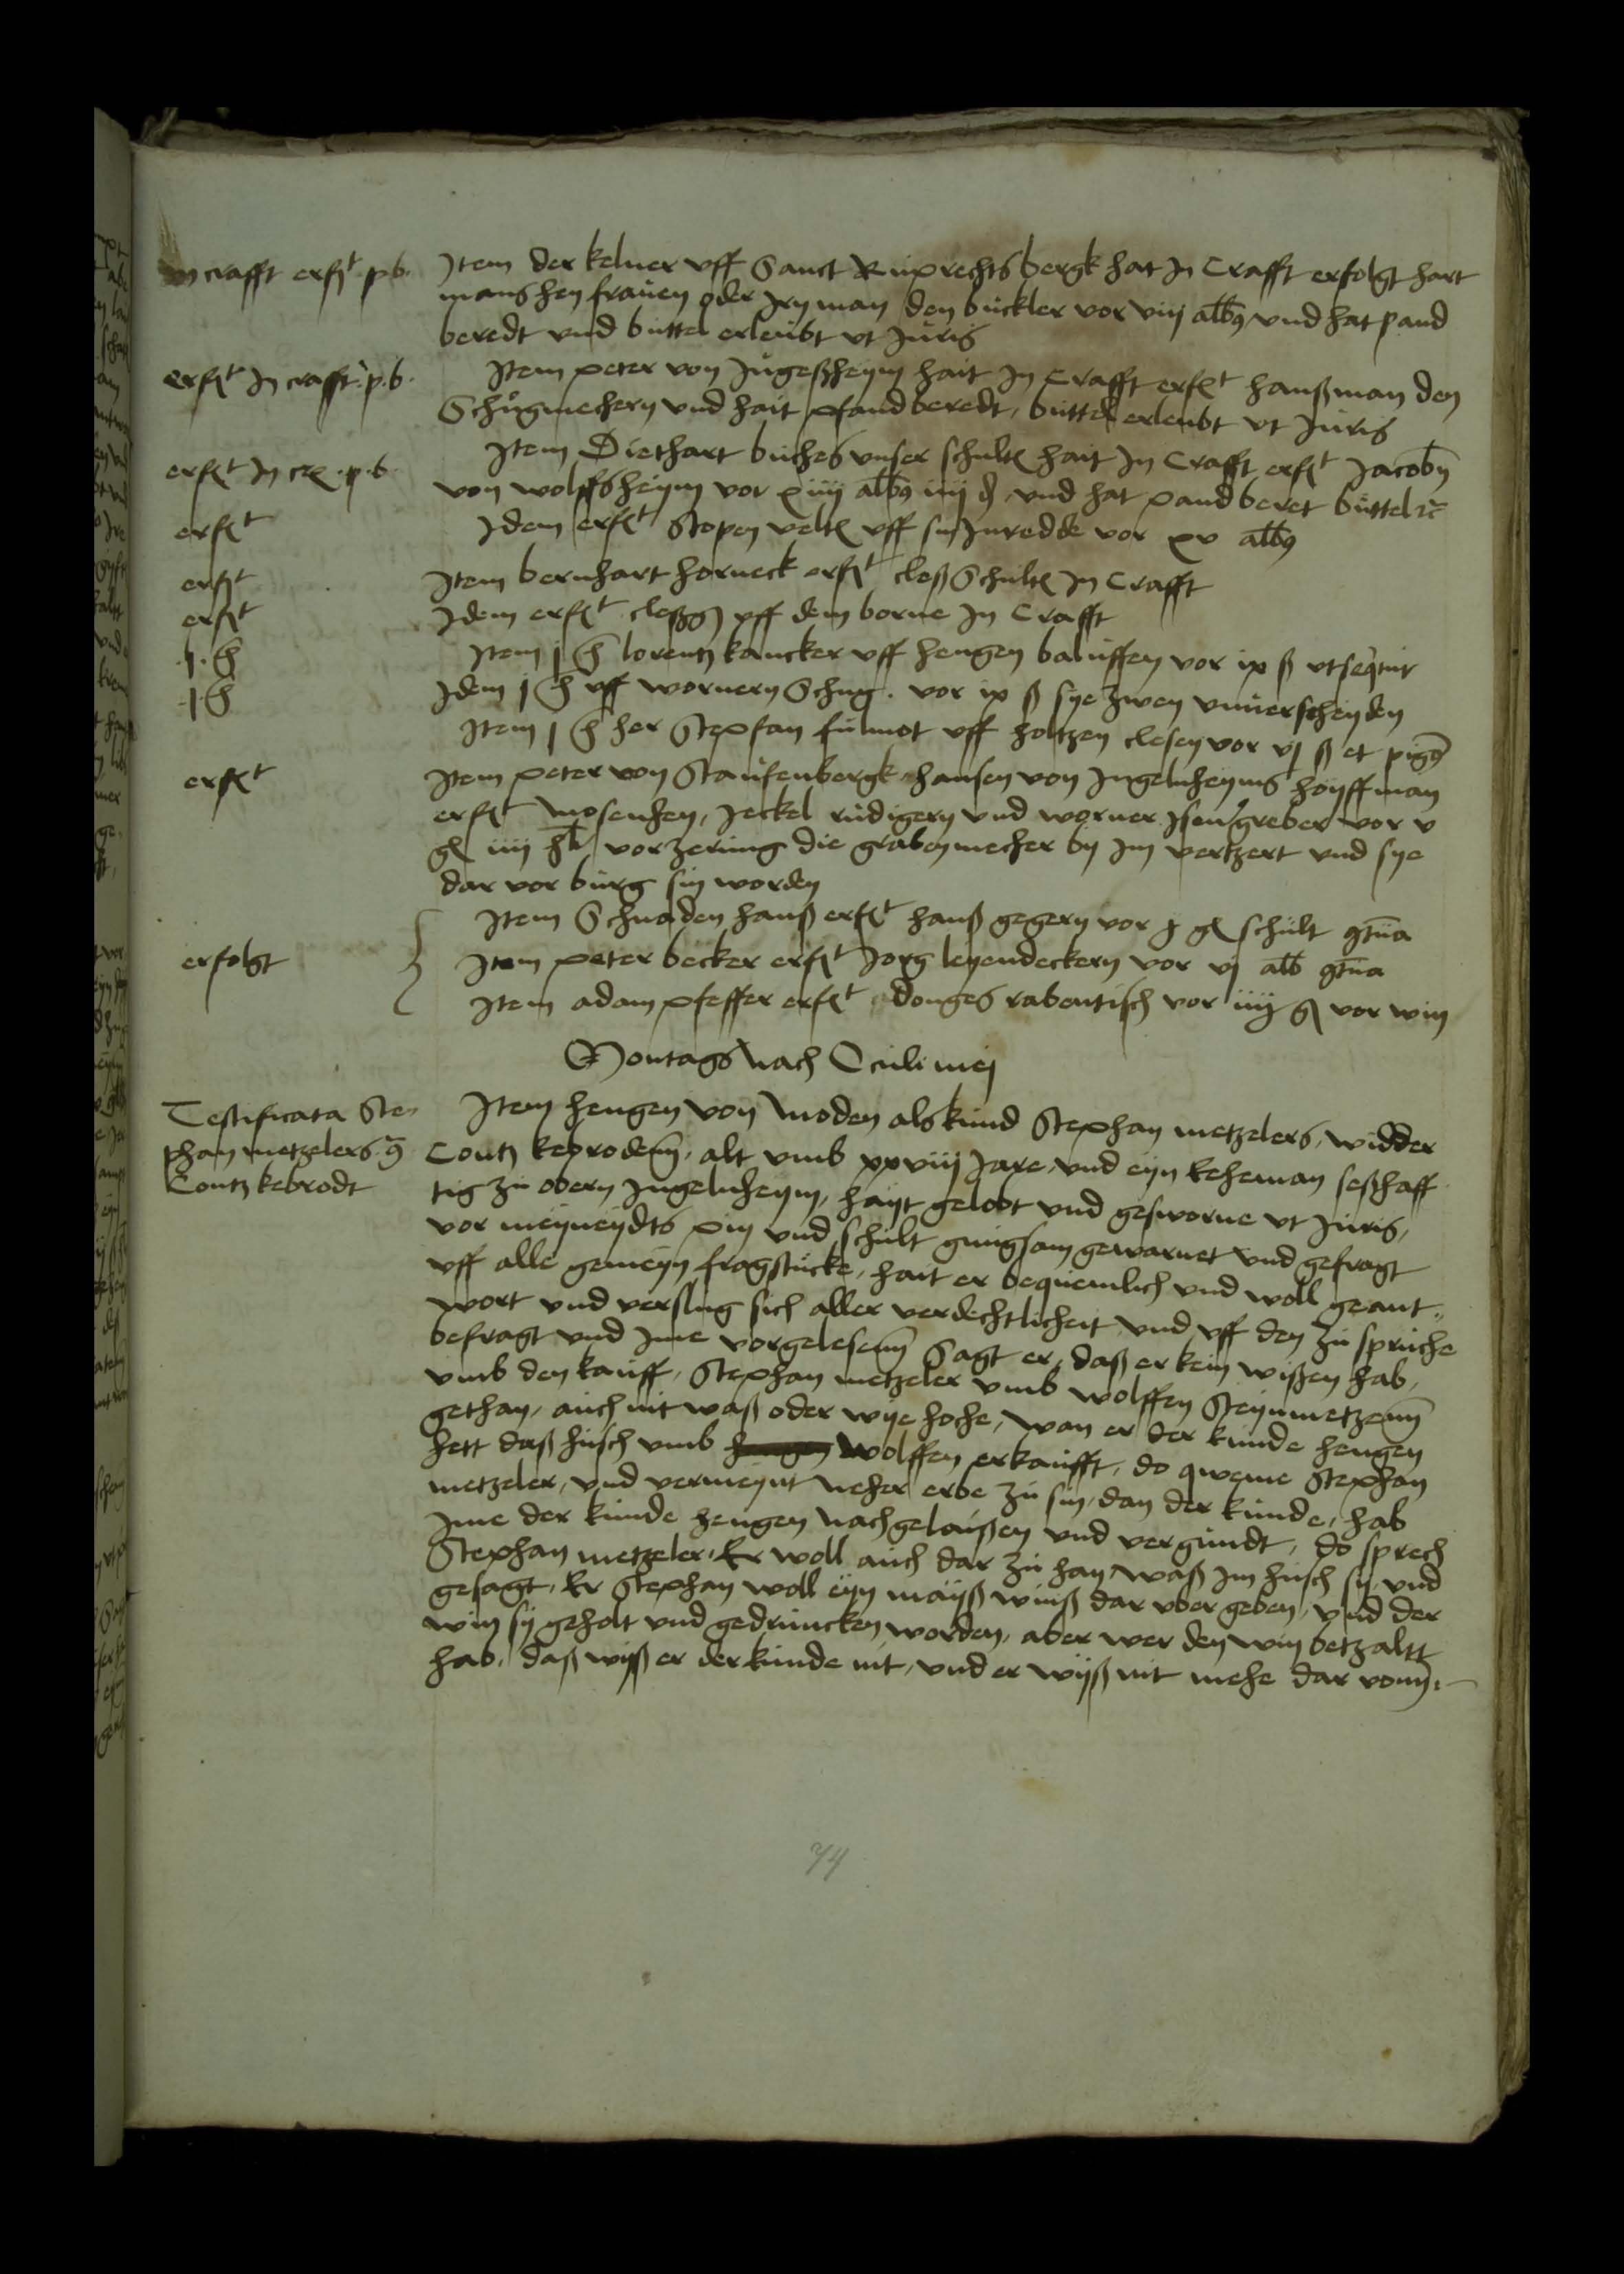 in crafft erf[t] p b
Item der kelner vff Sanct Ruprechts bergk hat In Crafft erfolgt hart
mans hen frauen oder Irn man den buckler vor viij alb9 vnd hat pand
beredt vnd buttel erleubt vt Juris
erf[t] In crafft p. b.
Item peter von Jugeßheym hait In Crafft erf[t] hanßman den
Schugmechern vnd hait pfand beredt, buttel erleubt vt Juris
erf[t] In cr p. b.
Item Diethart buches vnser schult hait In Crafft erf[t] Jacobn
von wolffsheym vor xiiij alb9 iiij d vnd hat pand beret buttel rc
erf[t]
Idem erf[t] Stopen velt vff sin Inredde vor xv alb9
erf[t]
Item bernhart horneck erf[t] cleß Schult In Crafft
erf[t]
Idem erf[t] cleßgin vff dem borne In Crafft
.1. h
Item j h lorentz kancker vff hengen baluffen vor ix ß vt sequitur
.1 h
Idem j h vff wornern Schug. vor ix ß sye zwen vnuerscheyden
Item j h her Stepfan fulmot vff holtzen clesen vor vj ß et pig9
erf[t]
Item peter von Staufenbergk hansen von Ingelnheyms hoyffman
erf[t] Mosenhen, Jeckel rudigern vnd worner Isengreber vor v
gl iiij hl vor zerung die graben mecher by Im vertzert vnd sye
dar vor burg sin worden
Item Schnaden hanß erf[t] hanß gegern vor j gl schult 9tua
erfolgt
Item peter becker erf[t] Jorg leyendeckern vor vj alb 9tua
Item adam pfeffer erf[t] donges rabentisch vor iiij gl vor win
Montags Nach Oculi mej
Testificata Ste
phan metzelers 9
Contz kebrodt
Item hengen von Moden als kund Stephan metzelers, widder
Contz keprodenn, alt vmb xxviij Jare, vnd eyn keheman seßhaff
tig zu obern Ingelnheym, hayt gelobt vnd gesworne vt Juris,
vor meyneydts pin vnd schult gnugsam gewarnet vnd gefragt
vff alle gemeyn fragstucke, hait er bequemlich vnd woll geant,,
wort vnd verslug sich aller verdechtlicheit vnd vff den zu spruche
befragt vnd Ime vorgelesenn Sagt er, daß er kein wißen hab,
vmb den kauff, Stephan metzeler vmb wolffen Steynmetzenn
gethan, auch nit waß oder wye hohe, wan er der kunde hengen
hett daß husch vmb hengen Wolffen erkaufft, do qweme Stephan
metzeler, vnd vermeynt neher erbe zu sin, dan der kunde, hab
Ime der kunde hengen nachgelaußen vnd vergundt, do sprech
Stephan metzeler, Er woll auch dar zu han waß Im husch sy, vnd
gesagt, Er Stephan woll eyn mayß winß dar vber geben, vnd der
win sy geholt vnd gedruncken worden, aber wer den win betzaltt
hab, daß wiß er der kunde nit, vnd er wyß nit mehe dar vonn,
74